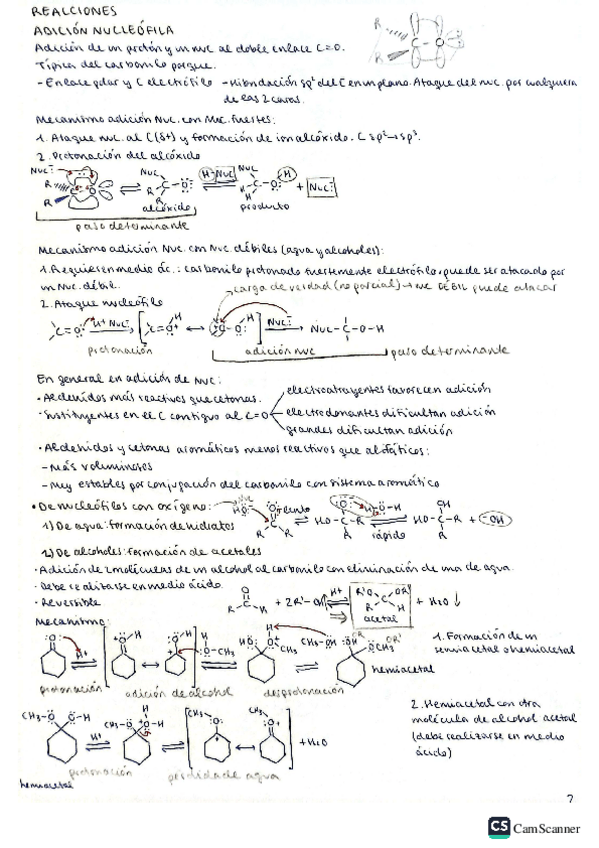 REACCIONES
ADICIÓN NUCLEÓFILA
Adición de un protón y un nuc al doble enlace C=O.
Típica del carbonilo porque.
- Enlace polar y C electrófilo - Hibridación sp² del C en un plano. Ataque del nuc. por cualquiera
de las 2 caras.
Mecanismo adición Nuc. con Nuc. fuertes:
1. Ataque nuc. al C(δ+) y formación de ion alcóxido. C sp²→sp³.
2. Protonación del alcóxido
alcóxido
producto
paso determinante
Mecanismo adición Nuc. con Nuc. débiles (agua y alcoholes):
1. Requieren medio ác.: carbonilo protonado fuertemente electrófilo y puede ser atacado por
un Nuc. débil.
carga de verdad (no parcial) → NUC DÉBIL puede atacar
2. Ataque nucleófilo
protonación
adición nuc
paso determinante
En general en adición de nuc:
• Aldehídos más reactivos que cetonas.
• Sustituyentes en el C contiguo al C=O
electroatrayentes favorecen adición
electrodonantes dificultan adición
grandes dificultan adición
• Aldehídos y cetonas aromáticos menos reactivos que alifáticos:
- Más voluminosos
- Muy estables por conjugación del carbonilo con sistema aromático
• De nucleófilos con oxígeno:
lento
rápido
1) De agua: formación de hidratos
2) De alcoholes: formación de acetales
• Adición de 2 moléculas de un alcohol al carbonilo con eliminación de una de agua.
• Debe realizarse en medio ácido
• Reversible
+ 2R'-OH
acetal
+ H₂O ↓
Mecanismo:
1. Formación de un
semiacetal o hemiacetal
hemiacetal
protonación
adición de alcohol
desprotonación
2. Hemiacetal con otra
molécula de alcohol acetal
(debe realizarse en medio
ácido)
+ H₂O
protonación
pérdida de agua
hemiacetal
7
CS CamScanner